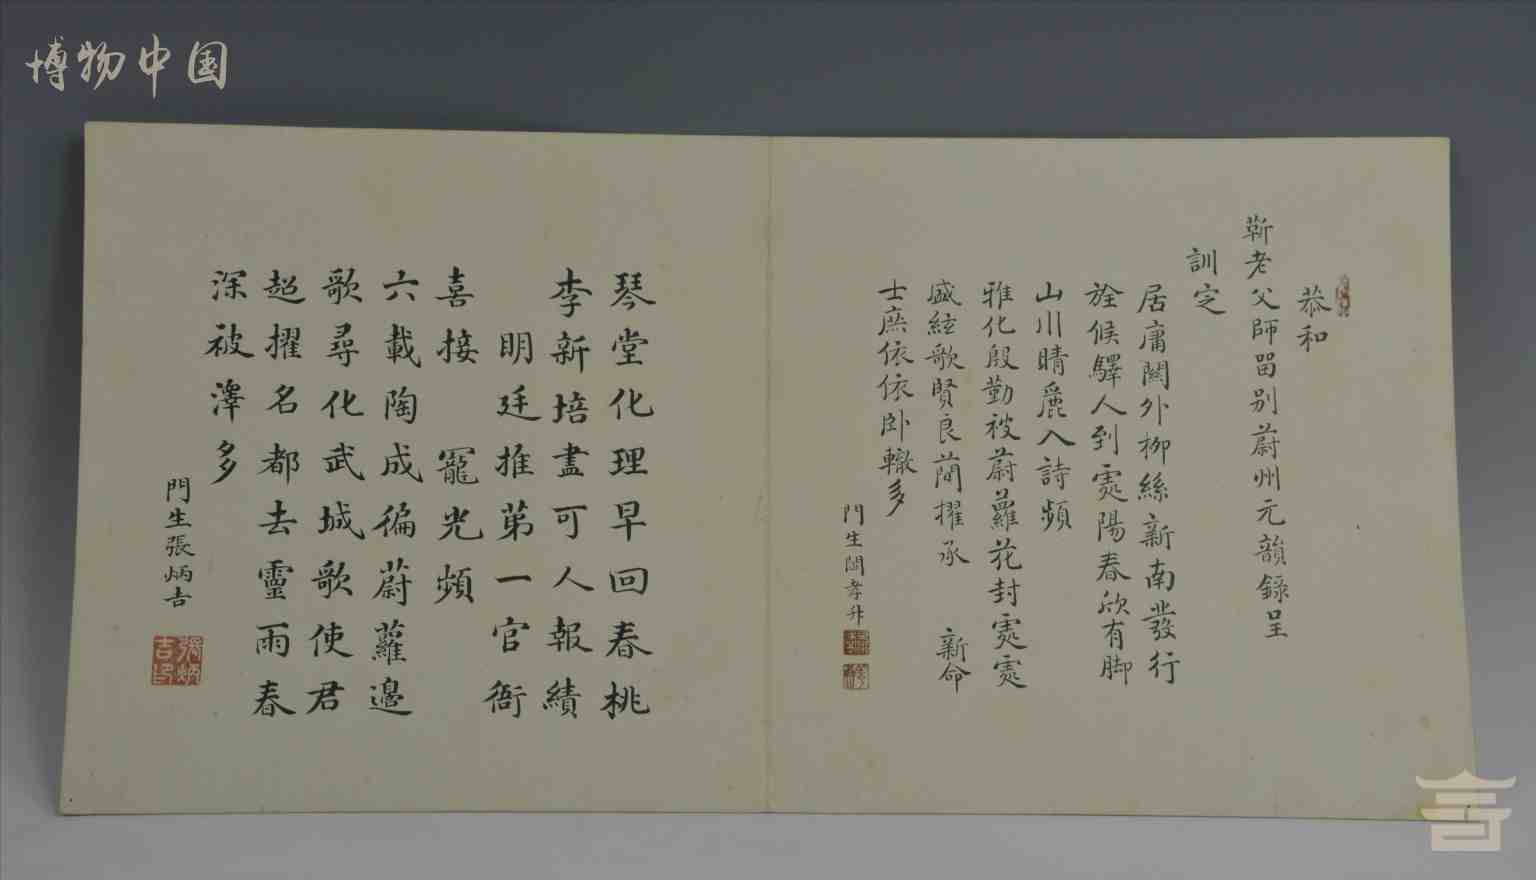 博物中国
恭和
靳老父師畱别蔚州元韻錄呈
訓定
居庸關外柳絲新南發行
旌候驛人到處陽春欣有脚
山川晴麗入詩頻
雅化殷勤被蔚蘿花封處處
盛絃歌賢良蕳擢承 新命
士庶依依卧轍多
門生閻孝升
琴堂化理早回春桃
李新培盡可人報績
明廷推苐一官衙
喜接 寵光頻
六載陶成徧蔚蘿邊
歌尋化武城歌使君
超擢名都去靈雨春
深被澤多
門生張炳吉
張炳吉印